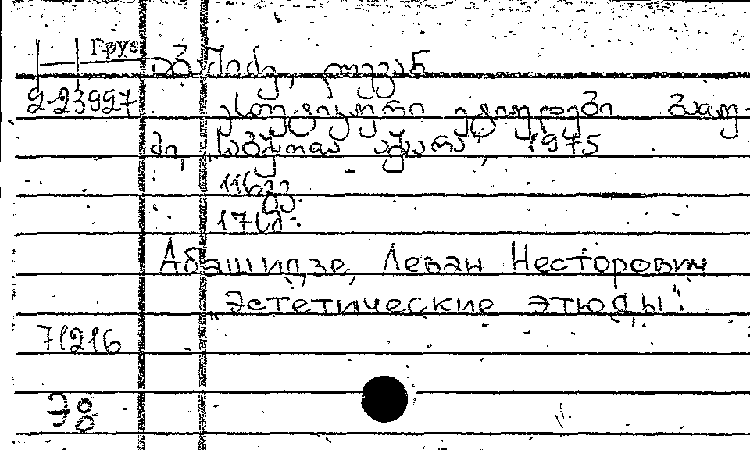 Груз
აბაშიძე, ლევან
2-23997 ესთეტიკური ეტიუდები ბათუ-
მი, "საბჭოთა აჭარა", 1975
116გვ.
Абашидзе, Леван Несторович
"Эстетические этюды".
71216